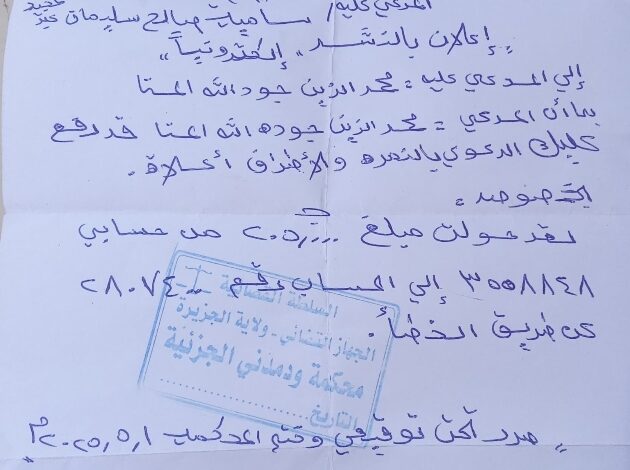 المدعي عليه/ ساميه صالح سليمان
"إعلان بالنشر" إلكترونياً"
إلي المدعي عليه = محمد الزين جود الله المنا
بما أن المدعي = محمد الزين جوده الله المنا قد رفع
عليك الدعوي بالنمره والأطراف أعلاة.
بخصوص =
لقد حولت مبلغ ٢٠٥,٠٠٠ ج من حسابي
٣٥٥٨٨٤٨ إلي الحساب رقم ٢٨٠٧٤٠٠
عن طريق الخطأ.
السلطة القضائية
الجهاز القضائي - ولاية الجزيرة
محكمة ودمدني الجزئية
التاريخ
"صدر تحت توقيعي وختم المحكمة ٢٠٢٥,٥,١م"